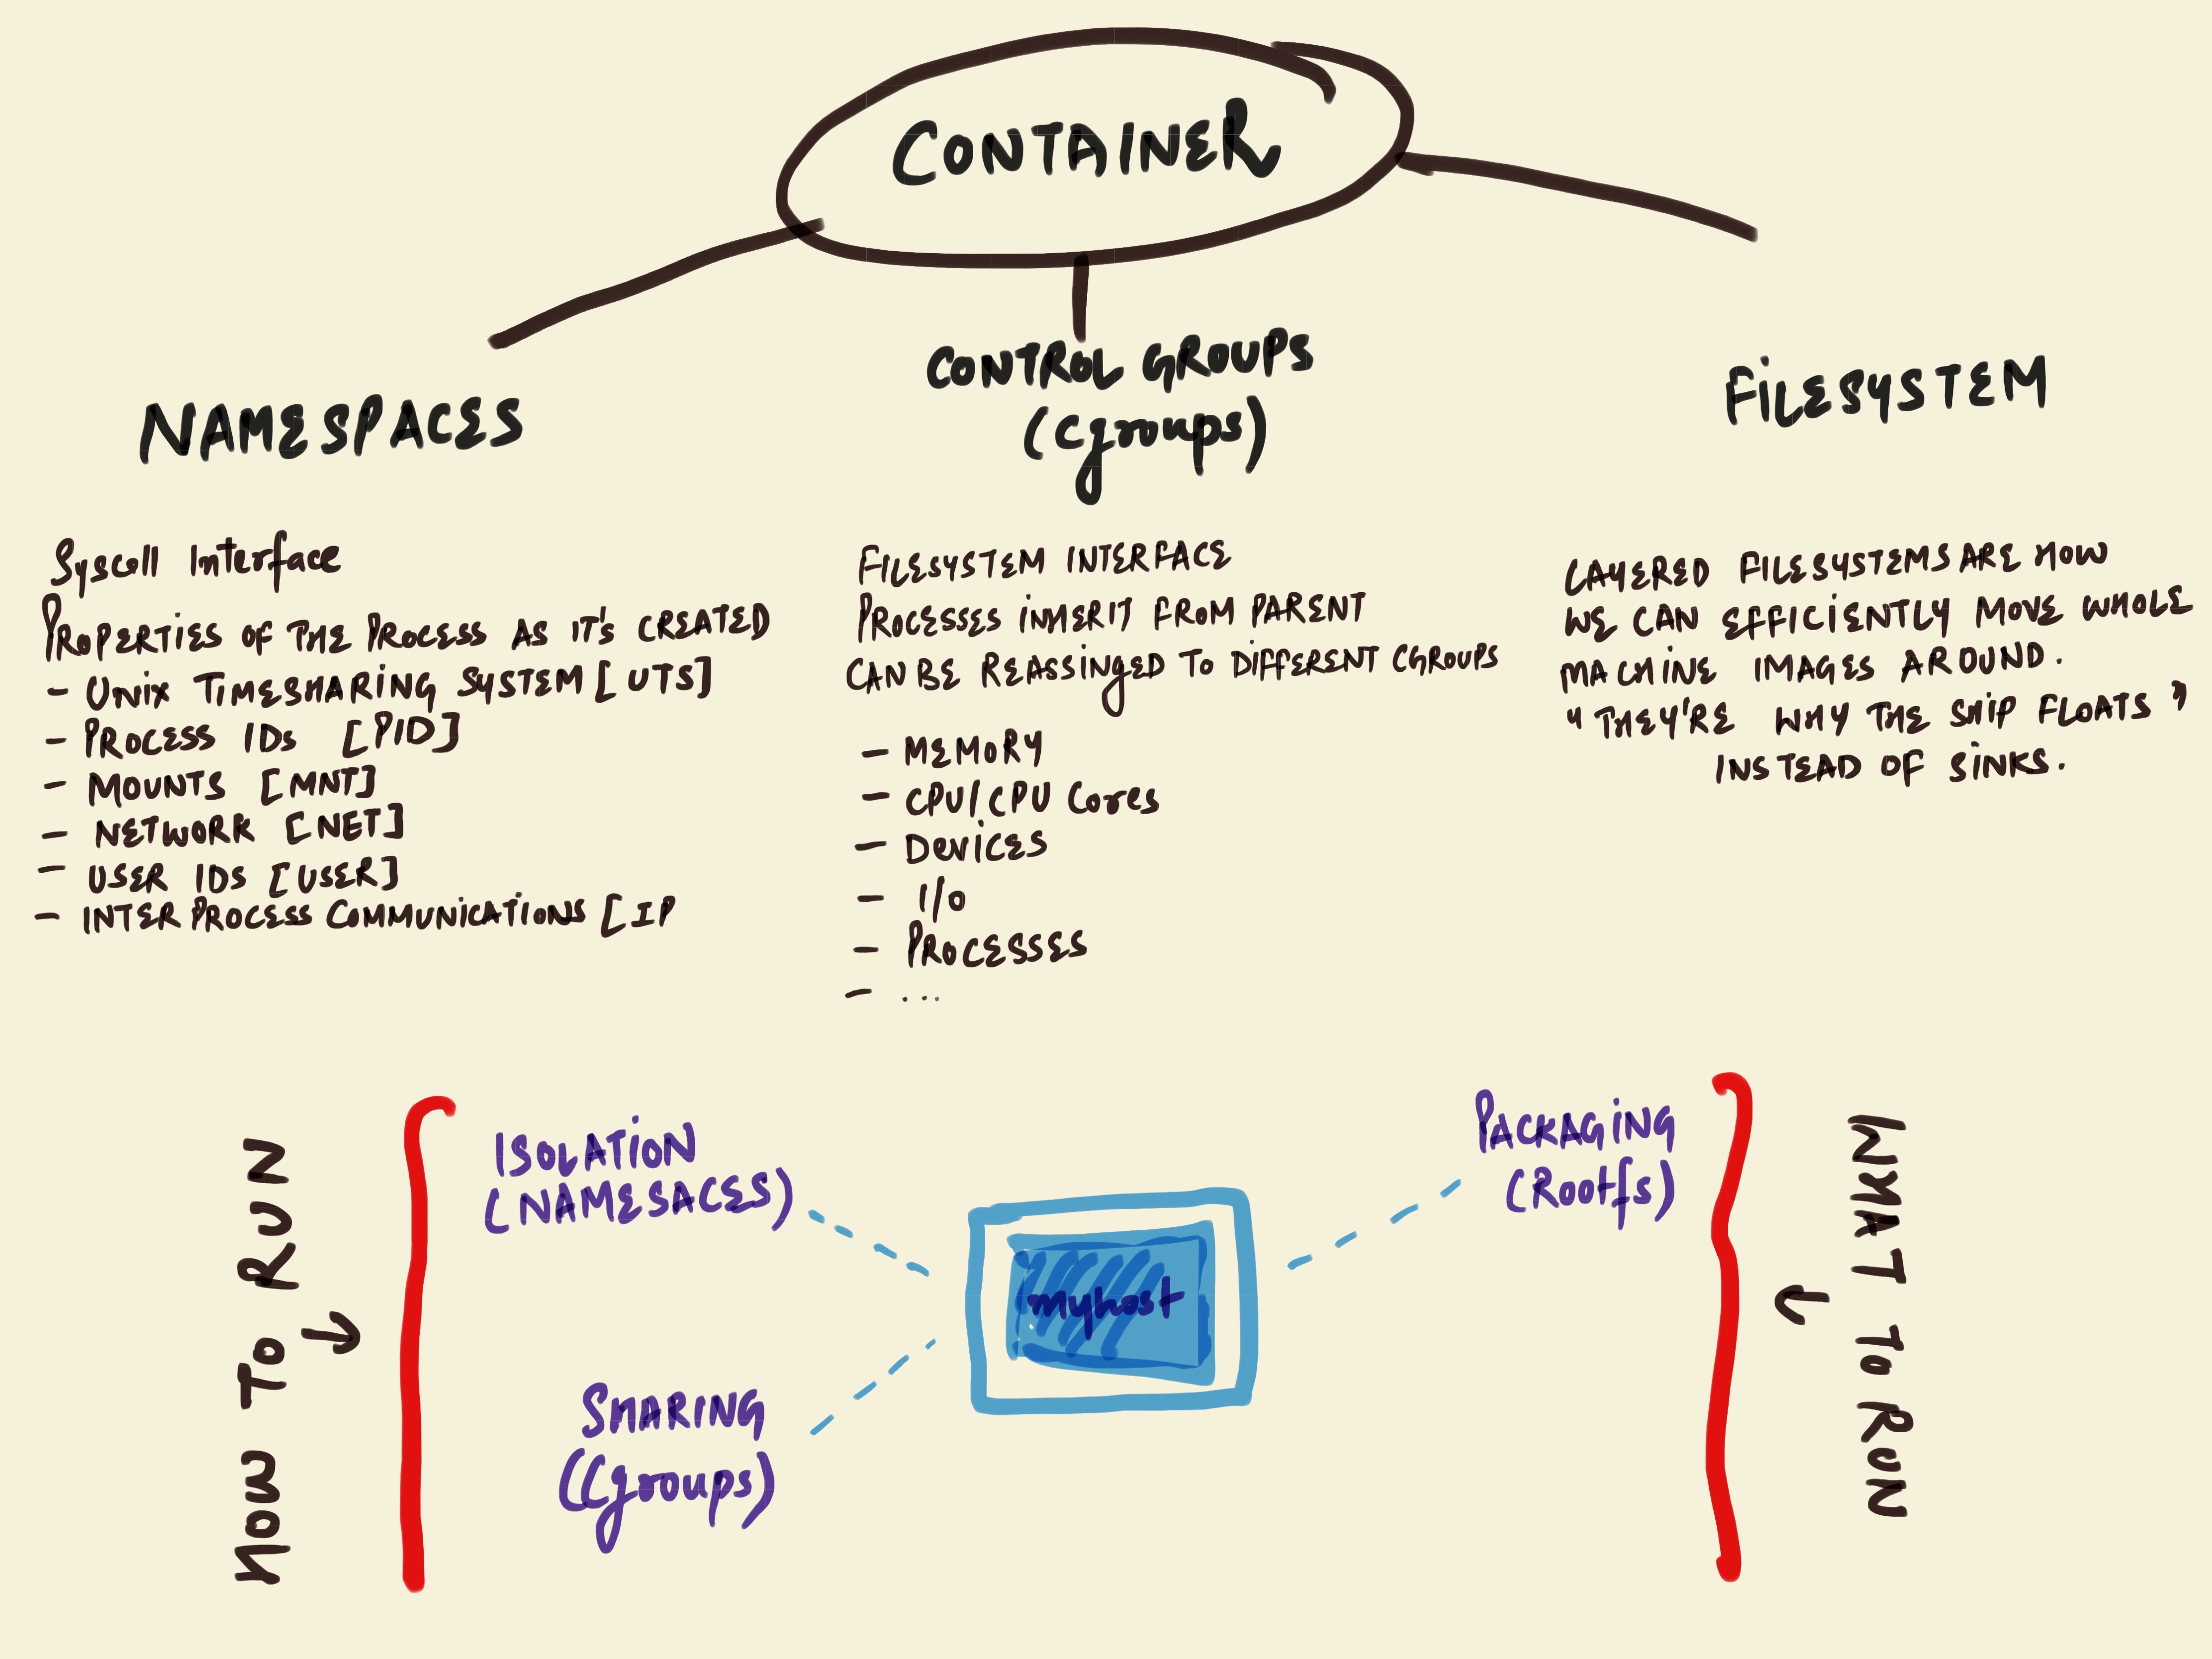 CONTAINER
NAMESPACES
CONTROL GROUPS
(Cgroups)
FILESYSTEM
Syscall Interface
PROPERTIES OF THE PROCESS AS IT'S CREATED
- UNIX TIMESHARING SYSTEM [UTS]
- PROCESS IDs [PID]
- MOUNTS [MNT]
- NETWORK [NET]
- USER IDS [USER]
- INTER PROCESS COMMUNICATIONS [IP
FILESYSTEM INTERFACE
PROCESSES INHERIT FROM PARENT
CAN BE REASSINGED TO DIFFERENT CGROUPS
- MEMORY
- CPU/CPU Cores
- DEVICES
- I/O
- PROCESSES
- ...
LAYERED FILESYSTEMS ARE HOW
WE CAN EFFICIENTLY MOVE WHOLE
MACHINE IMAGES AROUND.
"THEY'RE WHY THE SHIP FLOATS"
INSTEAD OF SINKS.
HOW TO RUN
ISOLATION
(NAMESACES)
SHARING
(Cgroups)
myhost
PACKAGING
(Rootfs)
WHAT TO RUN